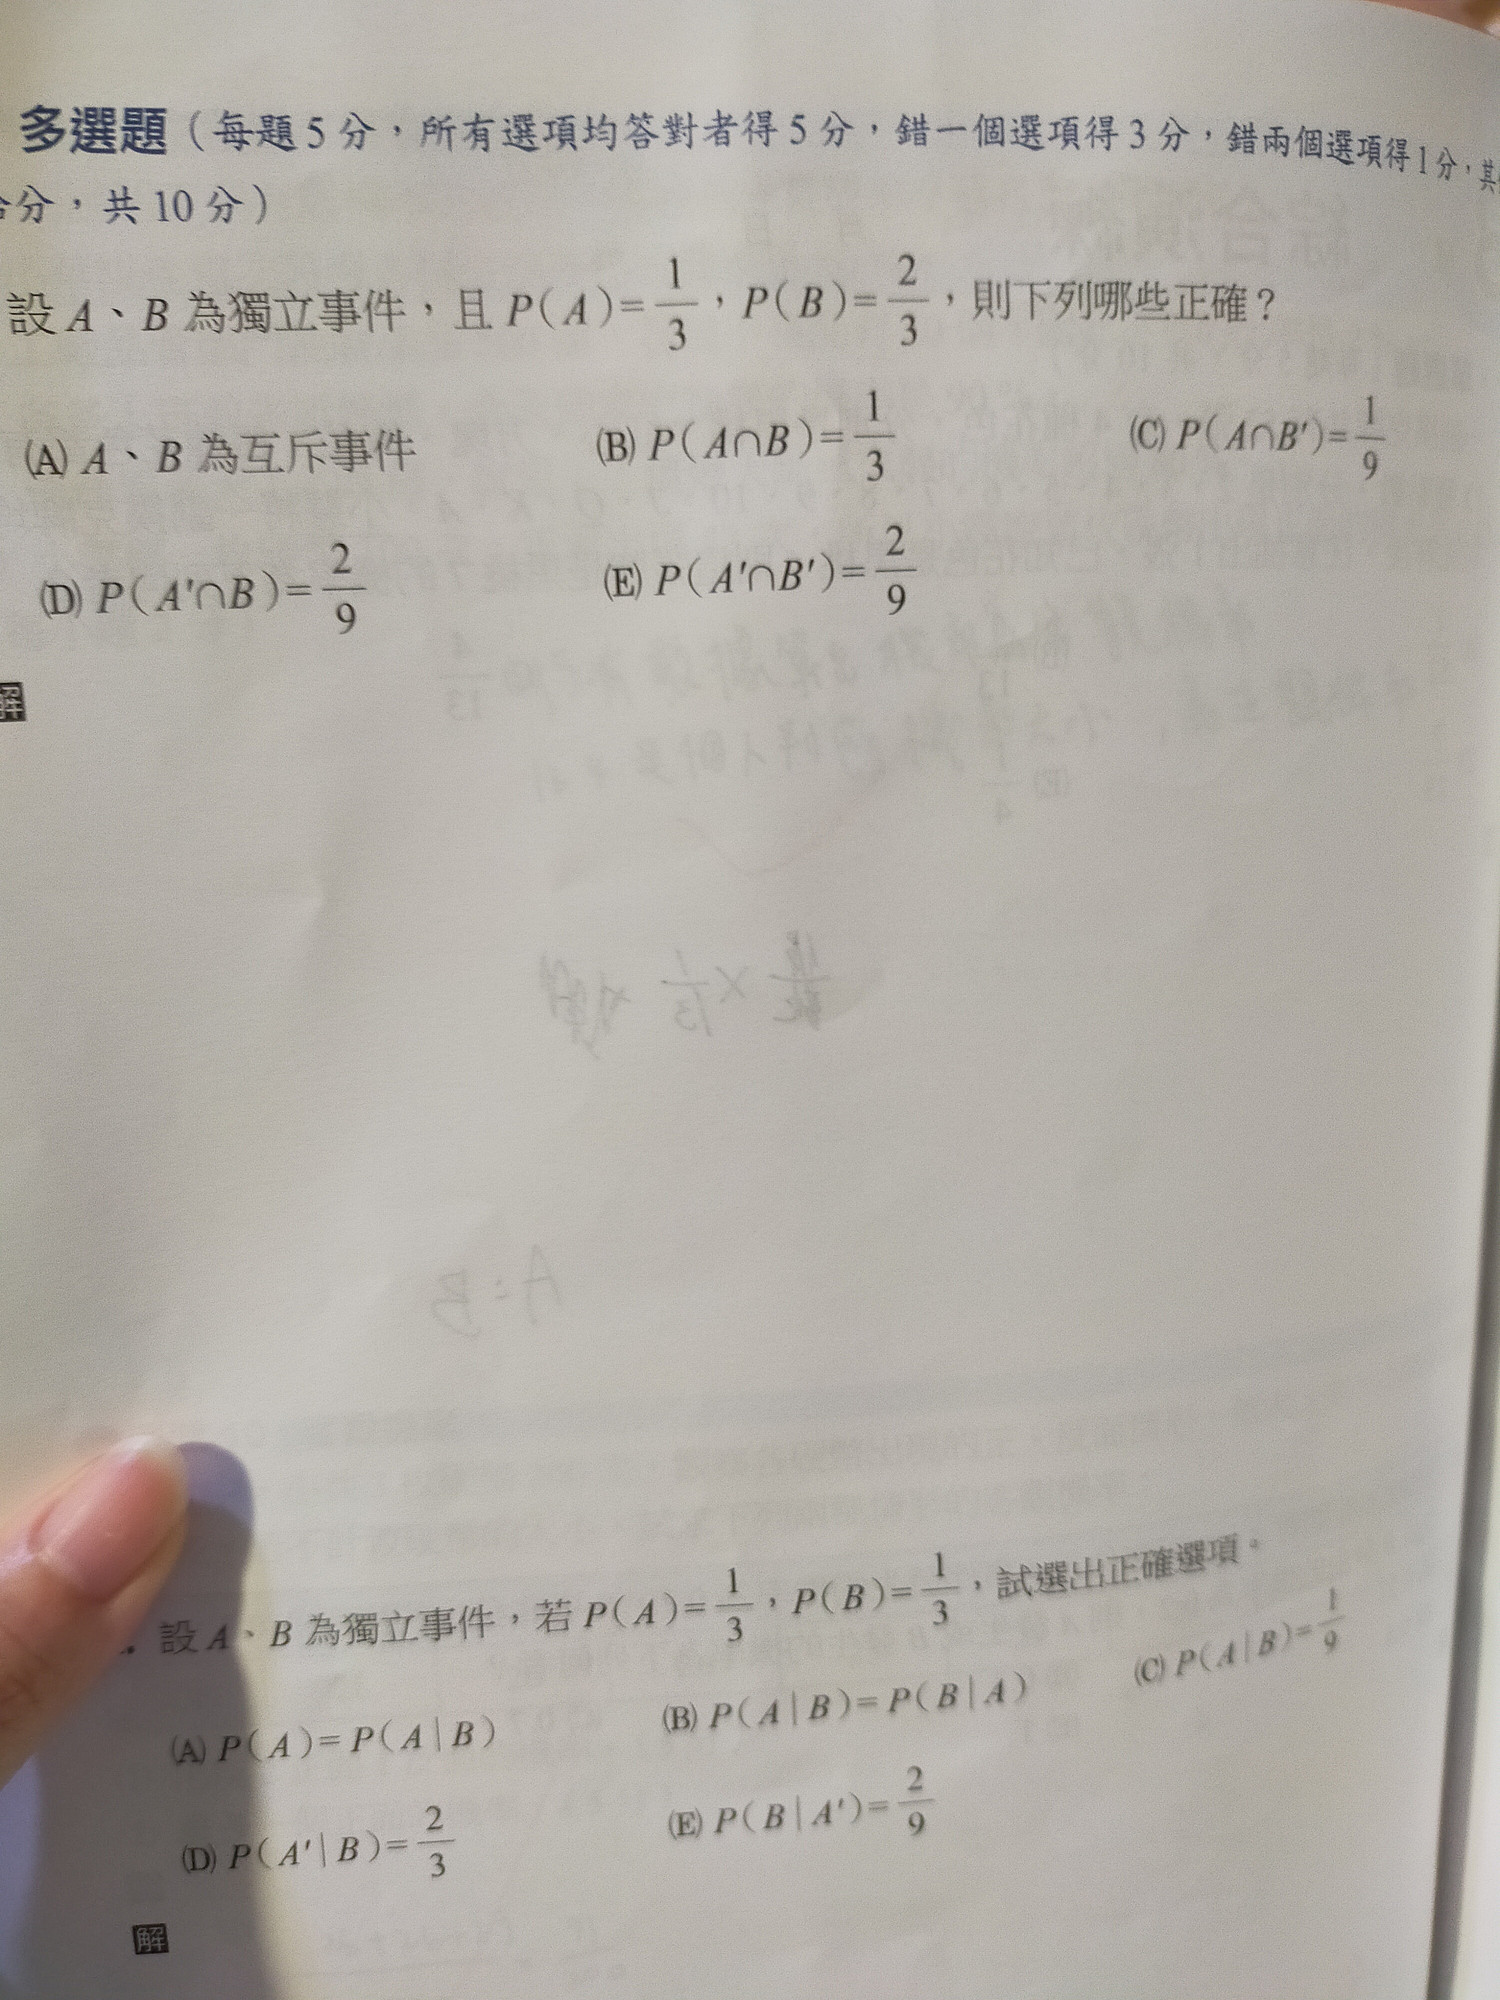 多選題（每題5分，所有選項均答對者得5分，錯一個選項得3分，錯兩個選項得1分，其
分，共10分）
設A、B為獨立事件，且P(A)=1/3，P(B)=2/3，則下列哪些正確？
(A) A、B為互斥事件 (B) P(A∩B)=1/3 (C) P(A∩B′)=1/9
(D) P(A′∩B)=2/9 (E) P(A′∩B′)=2/9
解
設A、B為獨立事件，若P(A)=1/3，P(B)=1/3，試選出正確選項。
(A) P(A)=P(A|B) (B) P(A|B)=P(B|A) (C) P(A|B)=1/9
(D) P(A′|B)=2/3 (E) P(B|A′)=2/9
解